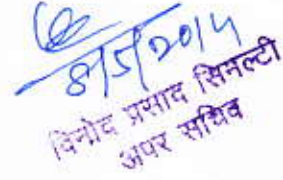 8/5/2014
विनोद प्रसाद सिमल्टी
अपर सचिव